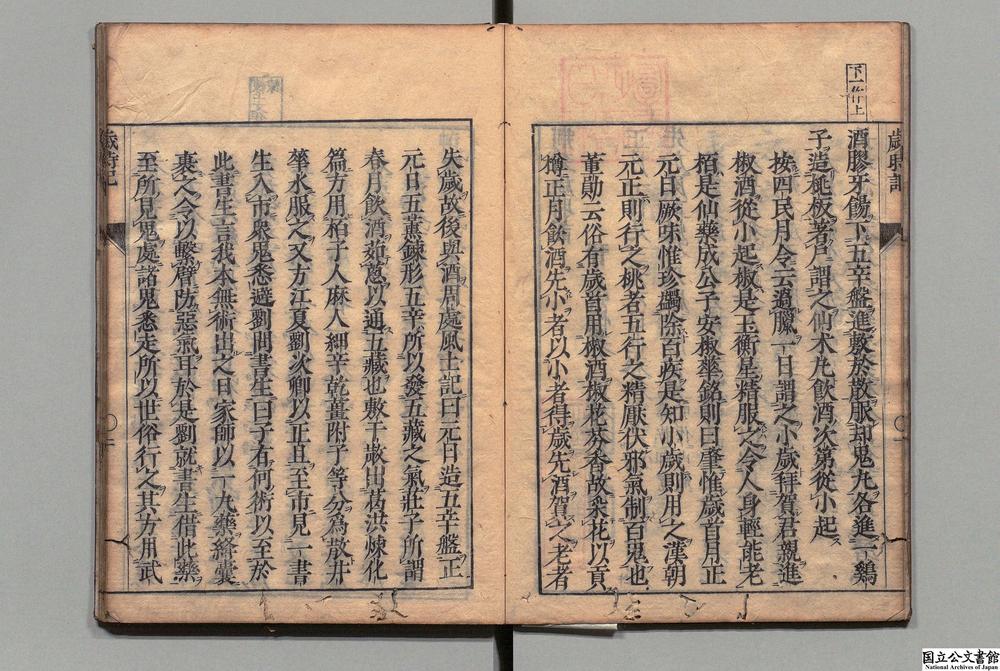 歲時記
下一作上
酒膠牙餳下五辛盤進敷於散服却鬼丸各進一鷄
子造桃板著戶謂之仙木凡飮酒次第從小起
按四民月令云過臘一日謂之小歲拜賀君親進
椒酒從小起椒是玉衡星精服之令人身輕能老
栢是仙藥成公子安椒華銘則曰肇惟歲首月正
元日厥味惟珍蠲除百疾是知小歲則用之漢朝
元正則行之桃者五行之精厭伏邪氣制百鬼也
董勛云俗有歲首用椒酒椒花芬香故采花以貢
樽正月飮酒先小者以小者得歲先酒賀之老者
失歲故後與酒周處風土記曰元日造五辛盤正
元日五薰鍊形五辛所以發五藏之氣莊子所謂
春月飮酒茹葱以通五藏也敷于散出葛洪煉化
篇方用栢子人麻人細辛乾薑附子等分爲散井
華水服之又方江夏劉次卿以正旦至市見一書
生入市衆鬼悉避劉問書生曰子有何術以至於
此書生言我本無術出之日家師以一丸藥絳囊
裹之令以繫臂防惡氣耳於是劉就書生借此藥
至所見鬼處諸鬼悉走所以世俗行之其方用武
歲時記
国立公文書館
National Archives of Japan